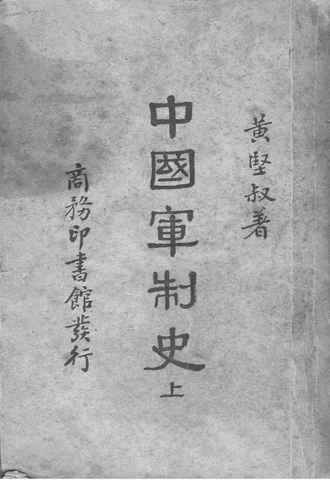 黃堅叔著
中國軍制史
上
商務印書館發行